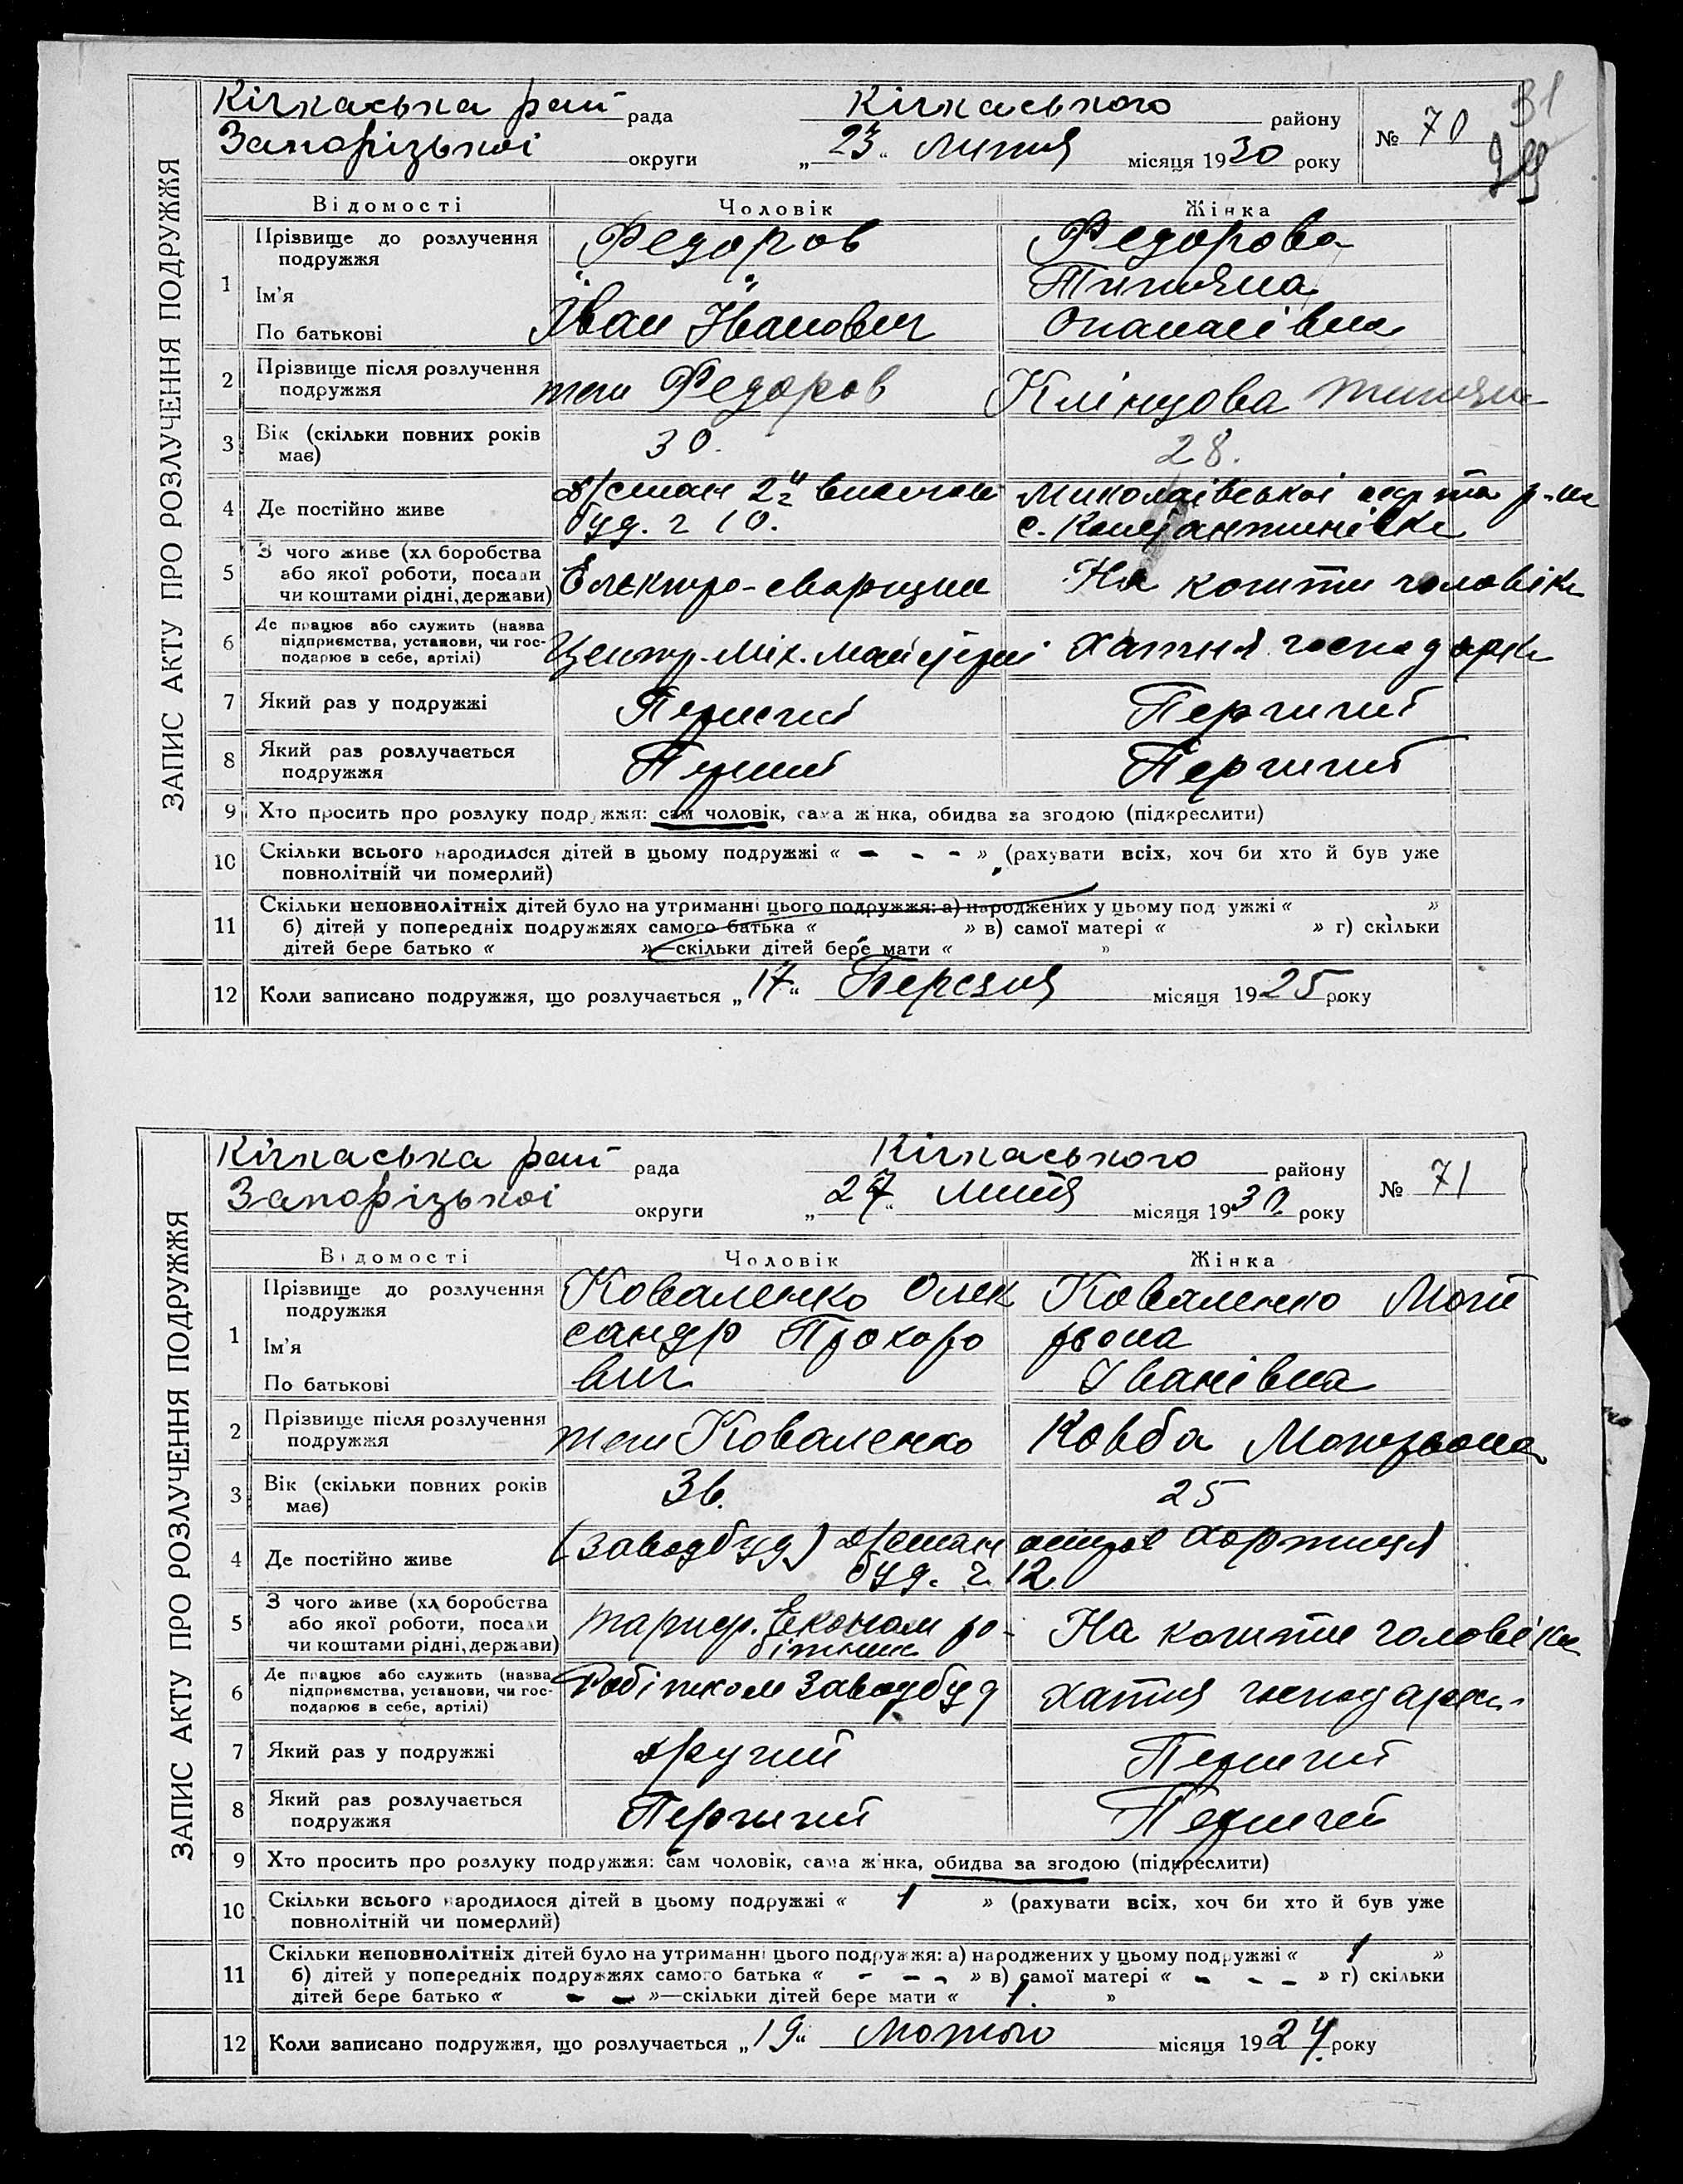 31
29
ЗАПИС АКТУ ПРО РОЗЛУЧЕННЯ ПОДРУЖЖЯ
Кічкаська рай рада Кічкаського району
Запорізької округи „23“ Липня місяця 1930 року № 70
Відомості Чоловік Жінка
1 Прізвище до розлучення подружжя Федоров Федорова
Ім'я " " Титяна
По батькові Іван Іванович Опанасівна
2 Прізвище після розлучення подружжя теж Федоров Клінцова
3 Вік (скільки повних років має) 30. 28.
4 Де постійно живе 2й виселок Миколаївської р-на
буд. ч 10. с. Константинівка
5 З чого живе (хліборобства або якої роботи, посади чи коштами рідні, держави) Електро-сварщик На кошти чоловіка
6 Де працює або служить (назва підприємства, установи, чи господарює в себе, артілі) Центр. Мех. Майстерні Хатня господарка
7 Який раз у подружжі Перший Перший
8 Який раз розлучається подружжя Перший Перший
9 Хто просить про розлуку подружжя: сам чоловік, сама жінка, обидва за згодою (підкреслити)
10 Скільки всього народилося дітей в цьому подружжі « - - - » (рахувати всіх, хоч би хто й був уже
повнолітній чи померлий)
11 Скільки неповнолітніх дітей було на утриманні цього подружжя: а) народжених у цьому подружжі « »
б) дітей у попередніх подружжях самого батька « » в) самої матері « » г) скільки
дітей бере батько « »—скільки дітей бере мати « »
12 Коли записано подружжя, що розлучається „17“ Березня місяця 1925 року
ЗАПИС АКТУ ПРО РОЗЛУЧЕННЯ ПОДРУЖЖЯ
Кічкаська рай рада Кічкаського району
Запорізької округи „27“ Липня місяця 1930 року № 71
Відомості Чоловік Жінка
1 Прізвище до розлучення подружжя Коваленко Олек Коваленко Мот
Ім'я сандр Прохоро рьона
По батькові вич Іванівна
2 Прізвище після розлучення подружжя теж Коваленко Ковба Мотрьона
3 Вік (скільки повних років має) 36. 25
4 Де постійно живе (Заводбуд) острів Хортиця
буд. ч. 12
5 З чого живе (хліборобства або якої роботи, посади чи коштами рідні, держави) тариф. Економ ро- На кошти чоловіка
бітник
6 Де працює або служить (назва підприємства, установи, чи господарює в себе, артілі) Робітком Заводбуд хатня господарка
7 Який раз у подружжі Другий Перший
8 Який раз розлучається подружжя Перший Перший
9 Хто просить про розлуку подружжя: сам чоловік, сама жінка, обидва за згодою (підкреслити)
10 Скільки всього народилося дітей в цьому подружжі « 1 » (рахувати всіх, хоч би хто й був уже
повнолітній чи померлий)
11 Скільки неповнолітніх дітей було на утриманні цього подружжя: а) народжених у цьому подружжі « 1 »
б) дітей у попередніх подружжях самого батька « - - - » в) самої матері « - - - » г) скільки
дітей бере батько « - - »—скільки дітей бере мати « 1. »
12 Коли записано подружжя, що розлучається „19“ Лютого місяця 1924 року